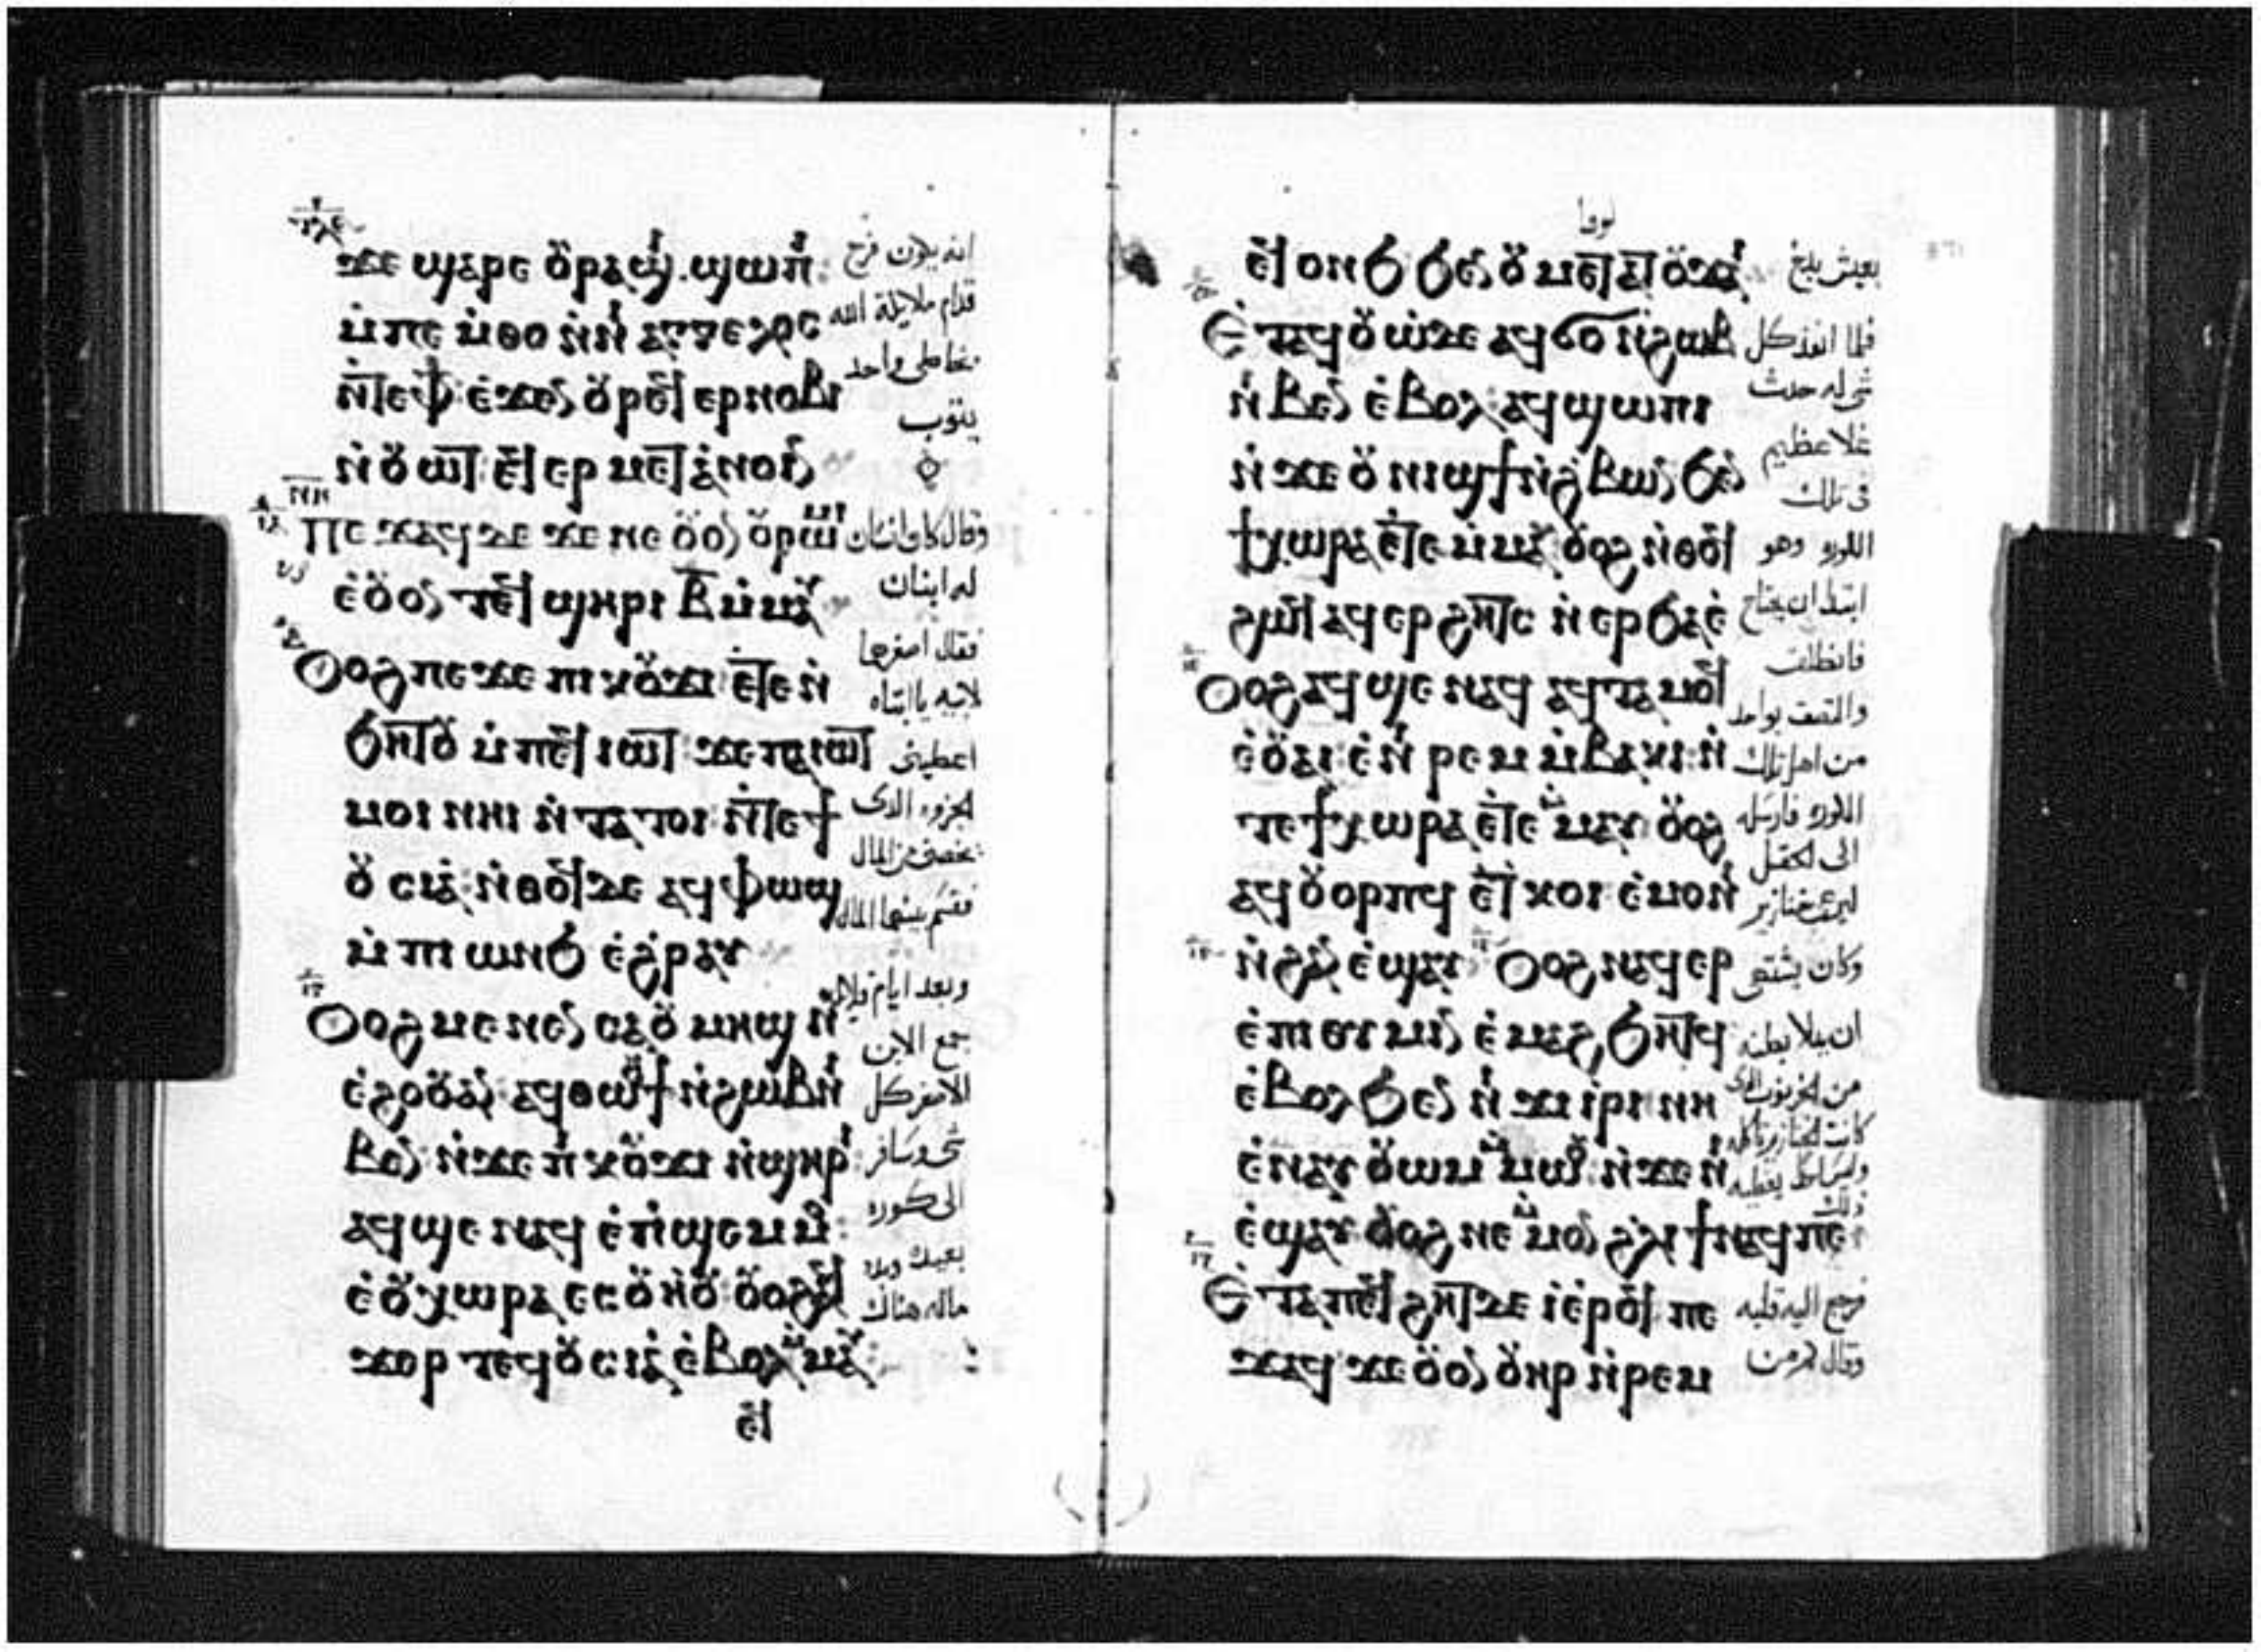 ϫⲉ ϣⲁⲣⲉ ⲟⲩⲣⲁϣⲓ ϣⲱⲡⲓ
ⲙ̀ⲡⲉ ⲙ̀ⲑⲟ ⲛ̀ⲛⲓ ⲁⲅⲅⲉⲗⲟⲥ
ⲛ̀ⲧⲉ ⲫϯ ⲉ̀ϫⲉⲛ ⲟⲩⲣⲉϥ ⲉⲣⲛⲟⲃⲓ
ⲛ̀ⲟⲩⲱⲧ ⲉϥⲉⲣ ⲙⲉⲧⲁⲛⲟⲓⲛ
ⲡⲉϫⲁϥ ⲇⲉ ϫⲉ ⲛⲉ ⲟⲩⲟⲛ ⲟⲩⲣⲱⲙⲓ
ⲉ̀ⲟⲩⲟⲛ ⲧⲉϥ ϣⲏⲣⲓ ⲃ̅ ⲙ̀ⲙⲁⲩ
ⲟⲩⲟϩ ⲡⲉϫⲉ ⲡⲓ ⲕⲟⲩϫⲓ ⲉ̀ⲧⲉ ⲛ̀
ϧⲏⲧⲟⲩ ⲙ̀ⲡⲉϥ ⲓⲱⲧ ϫⲉ ⲡⲁ ⲓⲱⲧ
ⲙⲟⲓ ⲛⲏⲓ ⲛ̀ⲧⲁ ⲧⲟⲓ ⲛ̀ⲧⲉ ϯ
ⲟⲩⲥⲓⲁ ⲛ̀ⲑⲟϥ ⲇⲉ ⲁϥ ⲫⲱϣ
ⲙ̀ⲡⲓ ⲱⲛϧ ⲉ̀ϩⲣⲁⲩ
ⲟⲩⲟϩ ⲙⲉⲛⲉⲛⲥⲁ ⲟⲩⲙⲏϣ ⲛ̀
ⲉ̀ϩⲟⲟⲩ ⲁⲛ ⲁϥⲑⲱⲟⲩϯ ⲛ̀ϩⲱⲃ ⲛⲓ
ⲃⲉⲛ ⲛ̀ϫⲉ ⲡⲓ ⲕⲟⲩϫⲓ ⲛ̀ϣⲏⲣⲓ
ⲁϥϣⲉ ⲛⲁϥ ⲉ̀ⲡϣⲉⲙⲙⲟ
ⲉ̀ⲟⲩⲭⲱⲣⲁ ⲉⲥⲟⲩⲏⲟⲩ ⲟⲩⲟϩ ⲁϥ
ϫⲱⲣ ⲧⲉϥⲟⲩⲥⲓⲁ ⲉ̀ⲃⲟⲗ ⲙ̀ⲙⲁⲩ
ⲉϥ
انه يكون فرح
قدام ملايكة الله
بخاطى واحد
يتوب
وقال كان انسان
له ابنان
فقال اصغرهما
لابيه يا ابتاه
اعطينى
الجزو الدى
يخصنى من المال
فقسم بينهما المال
وبعد ايام قلايل
جمع الابن
الاصغر كل
شى وسافر
الى كوره
بعيده وبدد
ماله هناك
لوقا
ⲉϥ ⲱⲛϧ ϧⲉⲛ ⲟⲩⲙⲉⲧⲁⲧⲟⲩϫⲁⲓ
ⲉ̀ⲧⲁϥⲟⲩⲱ ⲇⲉ ⲁϥϭⲟ ⲛ̀ϩⲱⲃ
ⲛⲓⲃⲉⲛ ⲉ̀ⲃⲟⲗ ⲁϥϣⲱⲡⲓ
ⲛ̀ϫⲉ ⲟⲩⲛⲓϣϯ ⲛ̀ϩⲃⲱⲛ ϧⲉⲛ
ϯⲭⲱⲣⲁ ⲉ̀ⲧⲉ ⲙ̀ⲙⲁⲩ ⲟⲩⲟϩ ⲛ̀ⲑⲟϥ
ϩⲱϥ ⲁϥⲉⲣ ϩⲏⲧⲥ ⲛ̀ⲉⲣ ϧⲁⲉ̀
ⲟⲩⲟϩ ⲁϥϣⲉ ⲛⲁϥ ⲁϥⲧⲁ ⲙⲟϥ
ⲉ̀ⲟⲩⲁⲓ ⲉ̀ⲛⲓ ⲣⲉⲙ ⲙ̀ⲃⲁⲕⲓ ⲛ̀
ⲧⲉ ϯⲭⲱⲣⲁ ⲉ̀ⲧⲉ ⲙ̀ⲙⲁⲩ ⲟⲩⲟϩ
ⲁϥⲟⲩⲟⲣⲡϥ ⲉ̀ⲧ ⲕⲟⲓ ⲉ̀ⲙⲟⲛⲓ
ⲛ̀ϩⲁⲛ ⲉ̀ϣⲁⲩ ⲟⲩⲟϩ ⲛⲁϥⲉⲣ
ⲉ̀ⲡⲓⲑⲩⲙⲓⲛ ⲉ̀ⲙⲁϩ ϧⲏⲧϥ
ⲉ̀ⲃⲟⲗ ϧⲉⲛ ⲛⲓ ϫⲓⲣⲓ ⲛⲏ
ⲉ̀ⲛⲁⲩ ⲟⲩⲱⲙ ⲙ̀ⲙⲱⲟⲩ ⲛ̀ϫⲉ ⲛⲓ
ⲉ̀ϣⲁⲩ ⲟⲩⲟϩ ⲛⲉ ⲙ̀ⲙⲟⲛ ϩⲗⲓ ϯ ⲛⲁϥ ⲡⲉ
ⲉ̀ⲧⲁ ⲡⲉϥ ϩⲏⲧ ⲇⲉ ⲓ̀ⲉ̀ⲣⲟϥ ⲡⲉ
ϫⲁϥ ϫⲉ ⲟⲩⲟⲛ ⲟⲩⲏⲣ ⲛ̀ⲣⲉⲙ
بعيش بذخ
فلما انفذ كل
شى له حدث
غلا عظيم
فى تلك
الكوره وهو
ابتدا ان يحتاج
فانطلق
والتصق بواحد
من اهل تلك
الكوره فارسله
الى الحقل
ليرعى خنازير
وكان يشتهى
ان يملا بطنه
من الخرنوب الدى
كانت الخنازير تاكله
فرجع اليه قلبه
وقال كم من